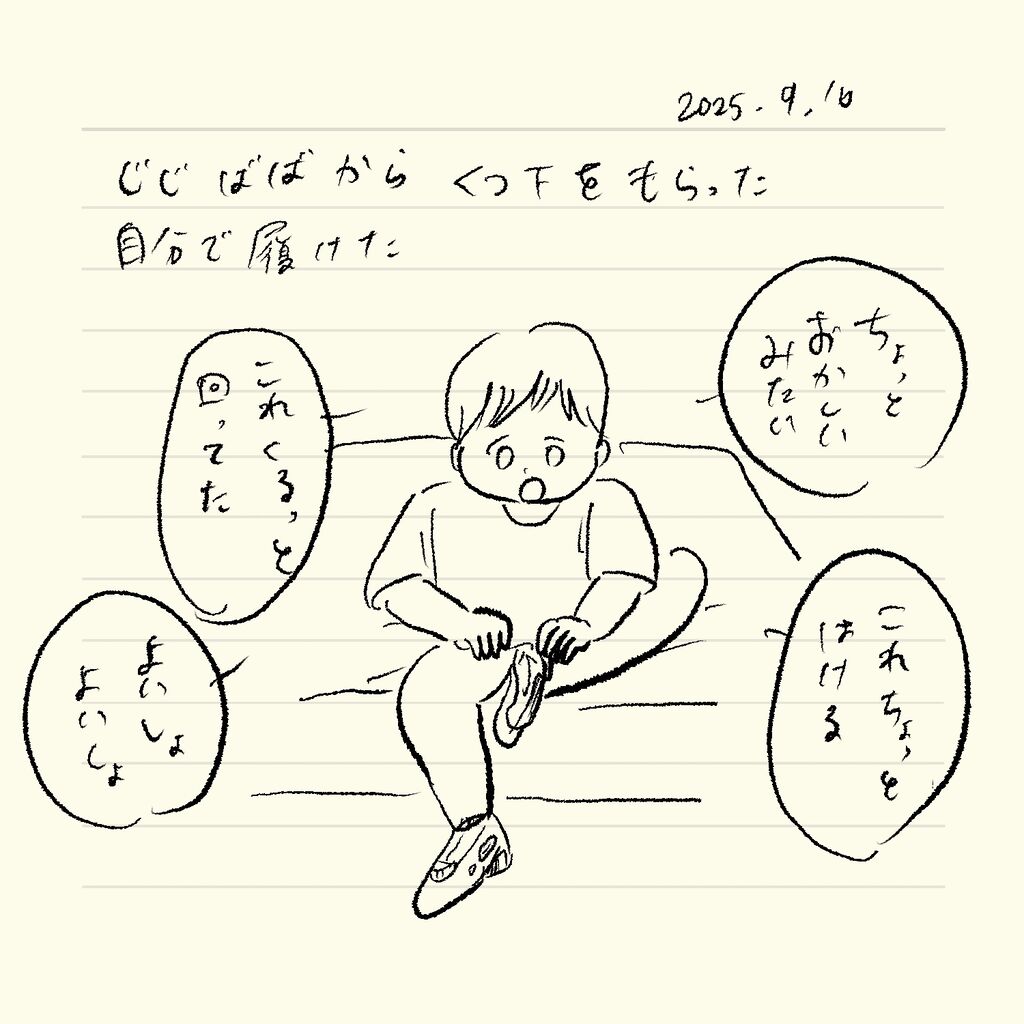 2025.9.16
じじ ばば から くつ下を もらった
自分で 履けた
ちょっと
おかしい
みたい
これ くるっと
回ってた
よいしょ
よいしょ
これ ちょっと
はける